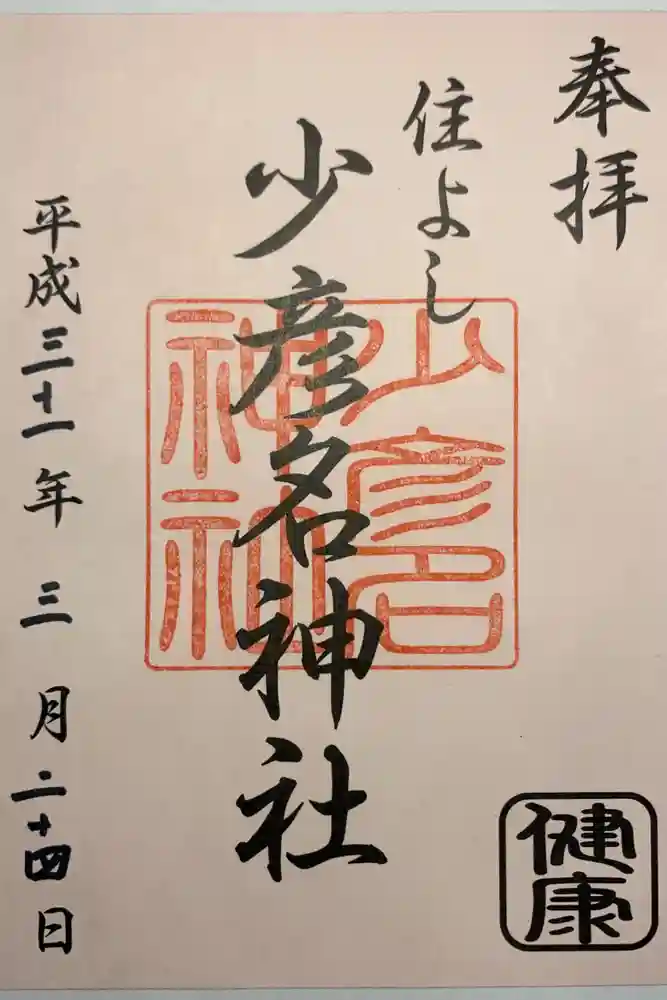 奉拝
住よし
少彦名神社
少彦名
神社
健康
平成三十一年三月二十四日